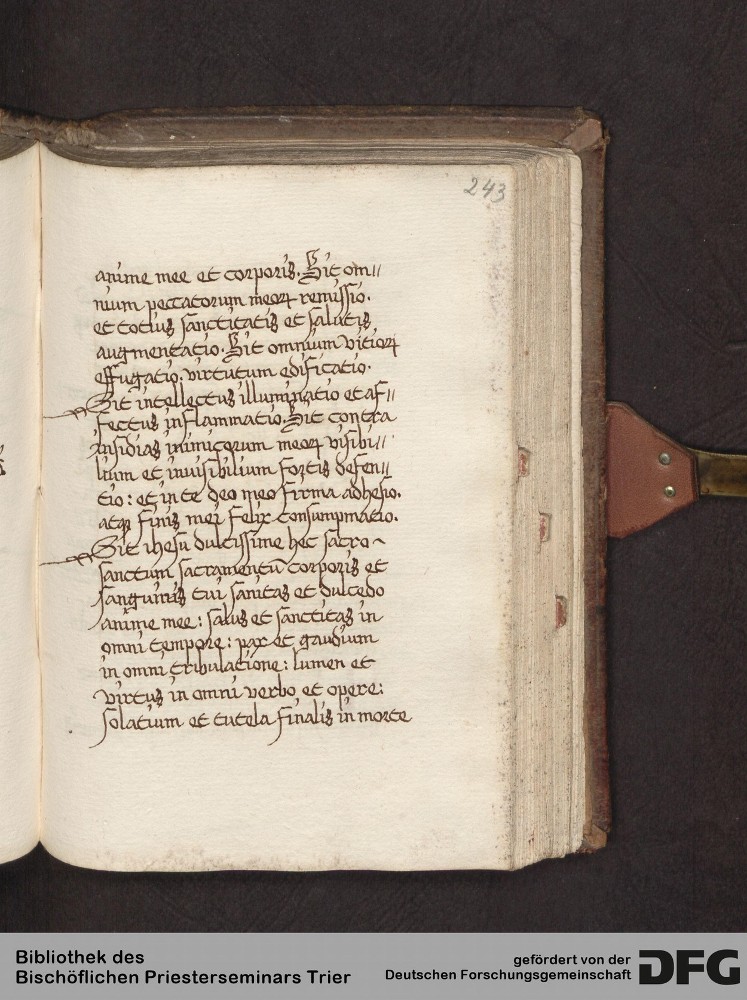 243
anime mee et corporis. Sit om//
nium peccatorum meoꝝ remissio.
et totius sanctitatis et salutis
augmentatio. Sit omnium vitioꝝ
effugatio. virtutum edificatio.
Sit intellectus illuminatio et af//
fectus inflammatio. Sit contra
insidias inimicorum meoꝝ visibi//
lium et inuisibilium fortis defen//
tio: et in te deo meo firma adhesio.
atqꝫ finis mei felix consumpmatio.
Sit ihesu dulcissime hec sacro~
sanctum sacramentū corporis et
sanguinis tui sanitas et dulcedo
anime mee: salus et sanctitas in
omni tempore: pax et gaudium
in omni tribulatione: lumen et
virtus in omni verbo et opere:
solatium et tutela finalis in morte
Bibliothek des
Bischöflichen Priesterseminars Trier
gefördert von der
Deutschen Forschungsgemeinschaft
DFG